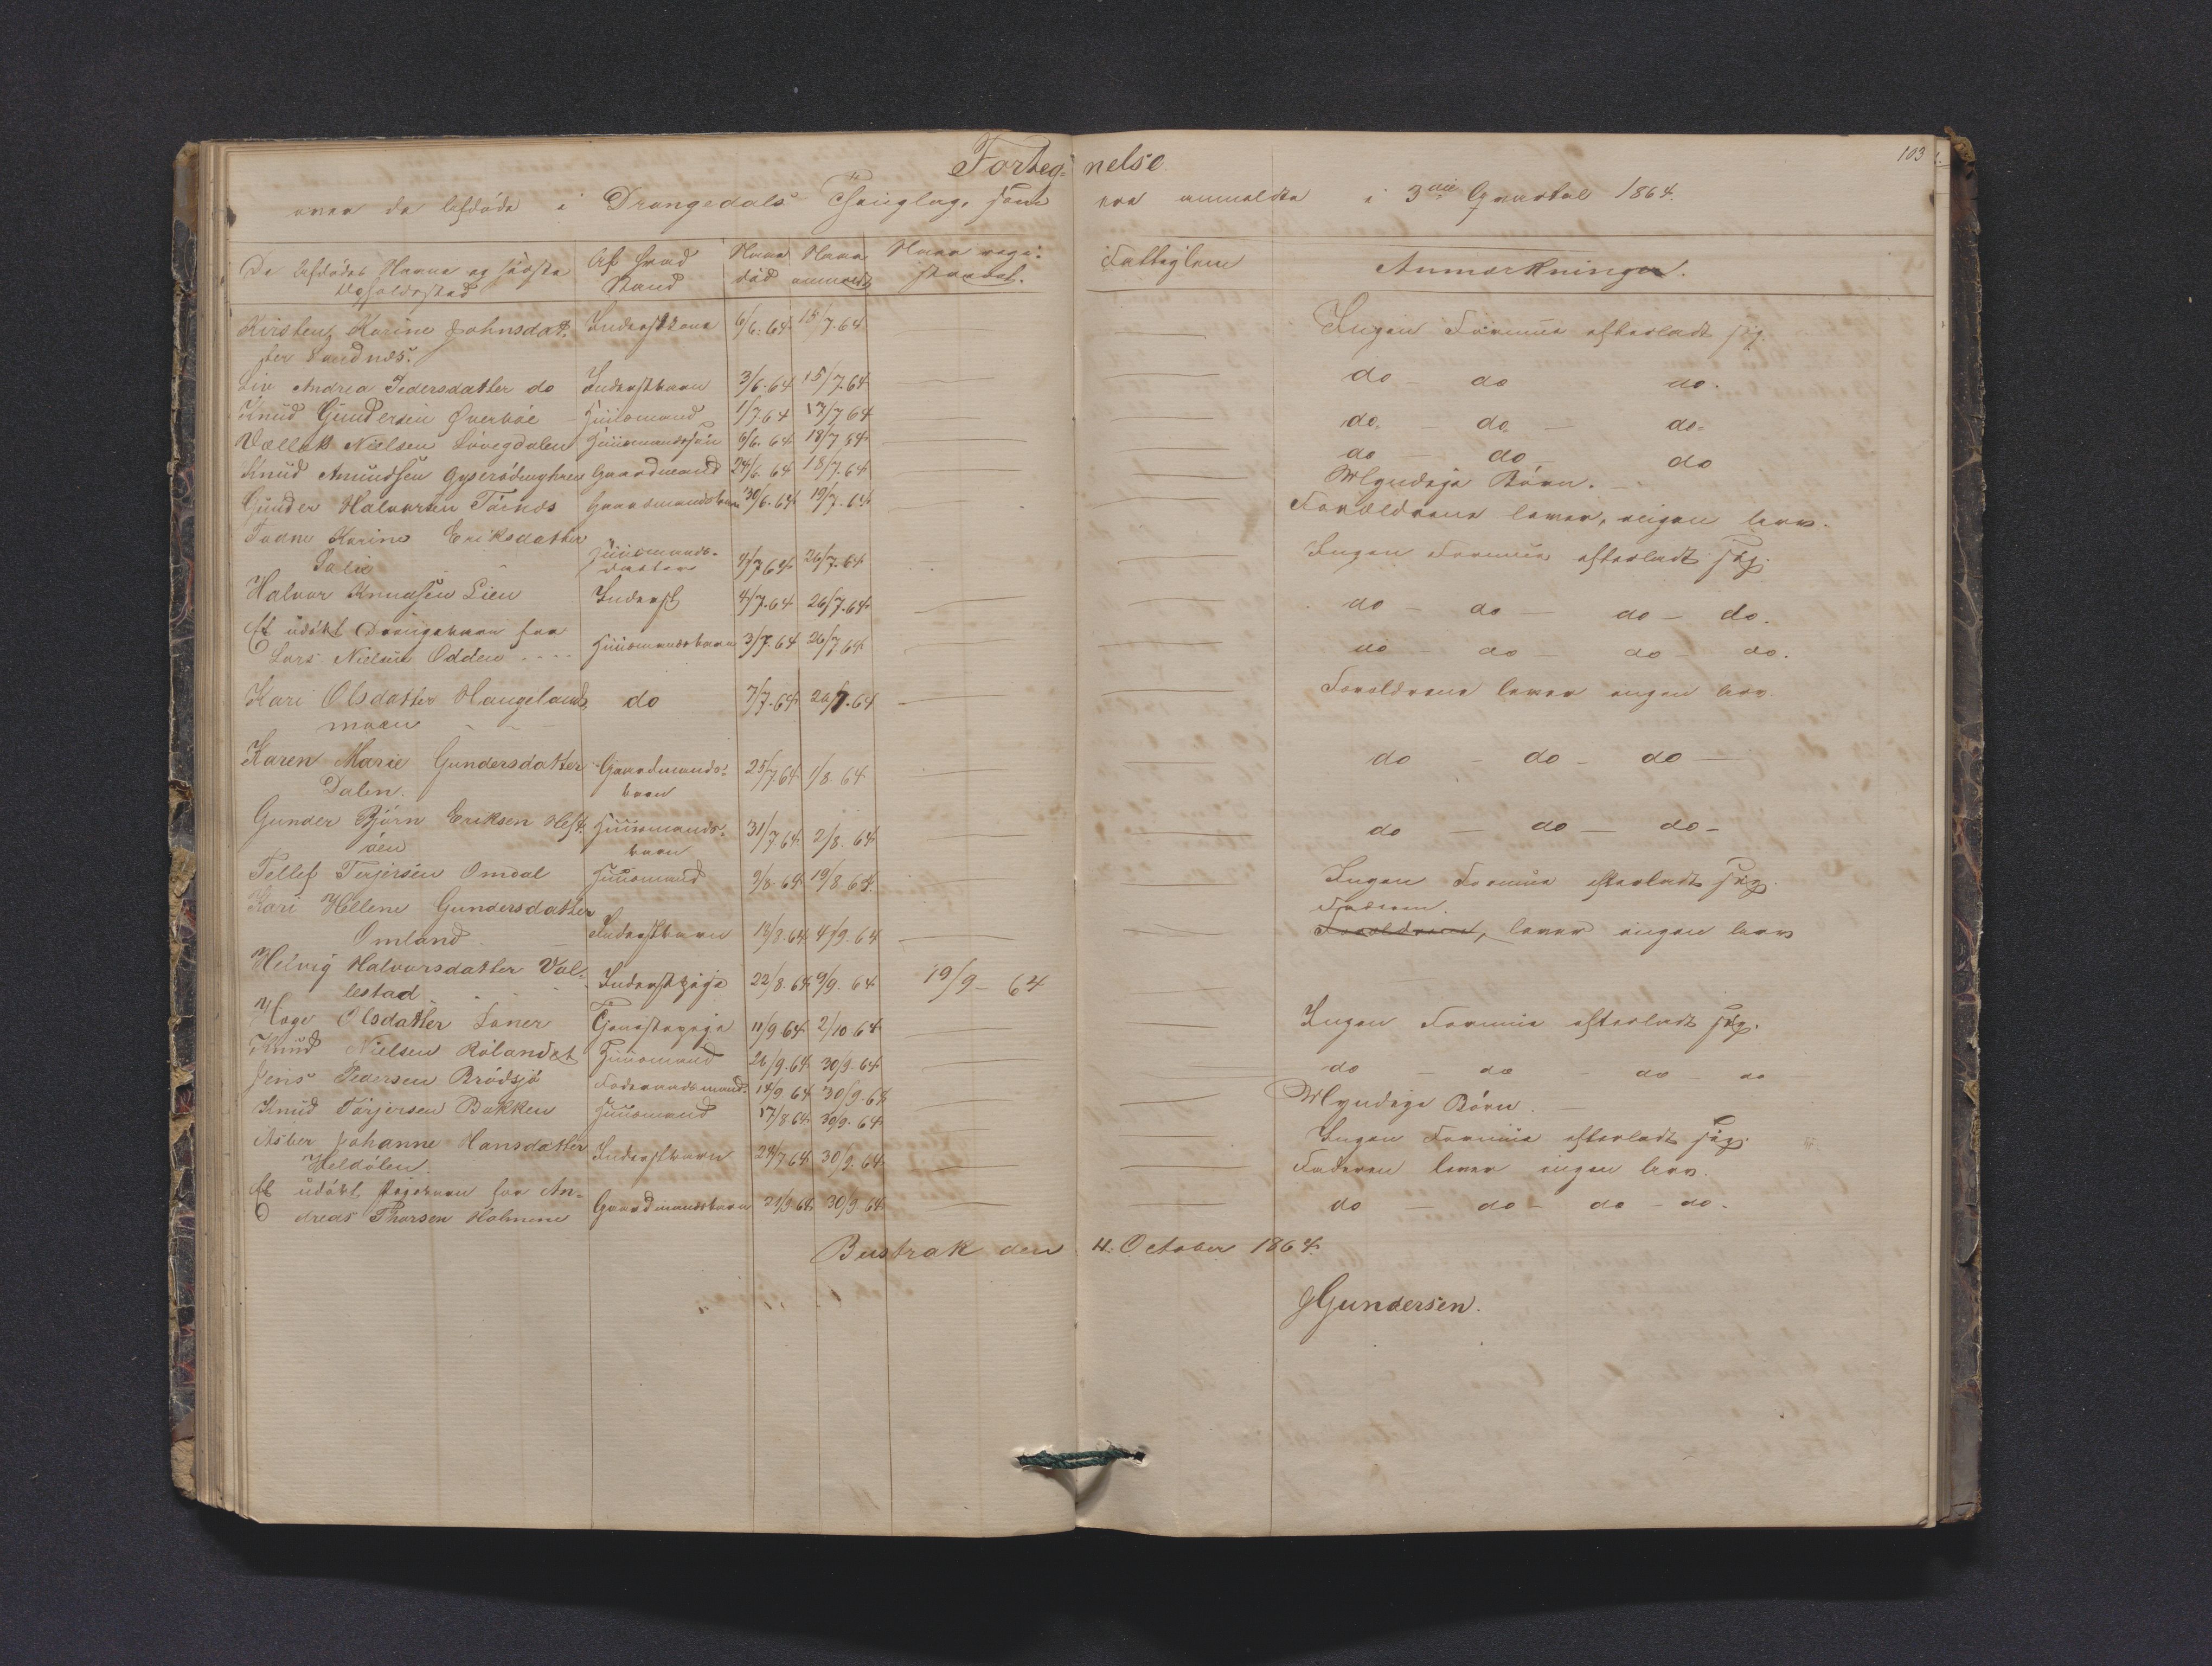 103
Forteg- nelse
over de Afdøde i Drangedals Thinglag, som ere anmeldte i 3die Qvartal 1864.
De Afdødes Navne og sidste Opholdssted | Af hvad Stand | Naar død | Naar anmeldt | Naar registreret. | Fattiglem | Anmærkninger.
Kirsten Karine Johnsdat- Inderstkone 6/6. 64. 15/7. 64 Ingen Formue efterladt sig.
ter Sandnes.
Liv Andrea Pedersdatter do Inderstbarn 3/6. 64 15/7. 64 do - do do.
Knud Gundersen Øverbøe Huusmand 1/7. 64 17/7 64 do. - do - do.
Nielsen Huusmandssøn 6/6. 64 18/7 64 do - do - do
Knud Amundsen Gaardmand 24/6 64 18/7. 64 Myndige Børn.
Gunder Halvorsen Gaardmandsbarn 30/6. 64 19/7. 64 Forældrene lever, eigen Arv.
Karine Eriksdatter
Huusmands-
datter 4/7 64 26/7. 64 Ingen Formue efterladt sig.
Halvor Knudsen Lien Inderst 4/7. 64 26/7. 64 do - do do - do.
Et udøbt Drengebarn for
Lars Nielsen Odden Huusmandsbarn 3/7. 64 26/7 64 do - do - do - do.
Kari Olsdatter Haugelands- do 7/7. 64 26/7. 64 Forældrene lever engen Arv.
moen
Karen Marie Gundersdatter Gaardmands- 25/7 64 1/8 64 do - do - do
Dalen. barn
Gunder Bjørn Eriksen Hest- Huusmands- 31/7 64 2/8. 64 do - do - do -
øen barn
Tellef Terjersen Omdal Huusmand 9/8. 64 19/8. 64. Ingen Formue efterladt sig.
Kari Hellene Gundersdatter Faderen.
Omland Inderstbarn 13/8. 64 4/9. 64 Forældrene, lever eigen Arv
Helvig Halvorsdatter Val- Inderstpige 22/8. 64 9/9. 64 19/9 - 64
lestad
Olsdatter Tjenestepige 11/9 64 2/10 64 Ingen Formue efterladt sig.
Knud Nielsen Rølandet Huusmand 26/9. 64 30/9. 64 do - do - do - do
Jens Pedersen Brødsjø Foderaadsmand 14/9 64 30/9. 64 Myndige Børn.
Knud Tørjersen Bakken Huusmand 17/8 64 30/9. 64 Ingen Formue efterladt sig.
Johanne Hansdatter Inderstbarn 24/7 64 30/9. 64 Faderen lever eigen Arv.
Heldølen.
Et udøbt Pigebarn for An- Gaardmandsbarn 21/9 64 30/9 64 do - do - do - do.
dreas Thorsen Holmene
Bustrak den 4. October 1864.
GGundersen.